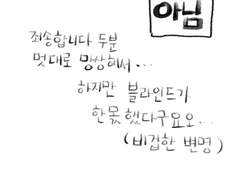 아님
죄송합니다 두분
멋대로 망상해서...
하지만 블라인드가
한몫했다구요오...
(비겁한 변명)